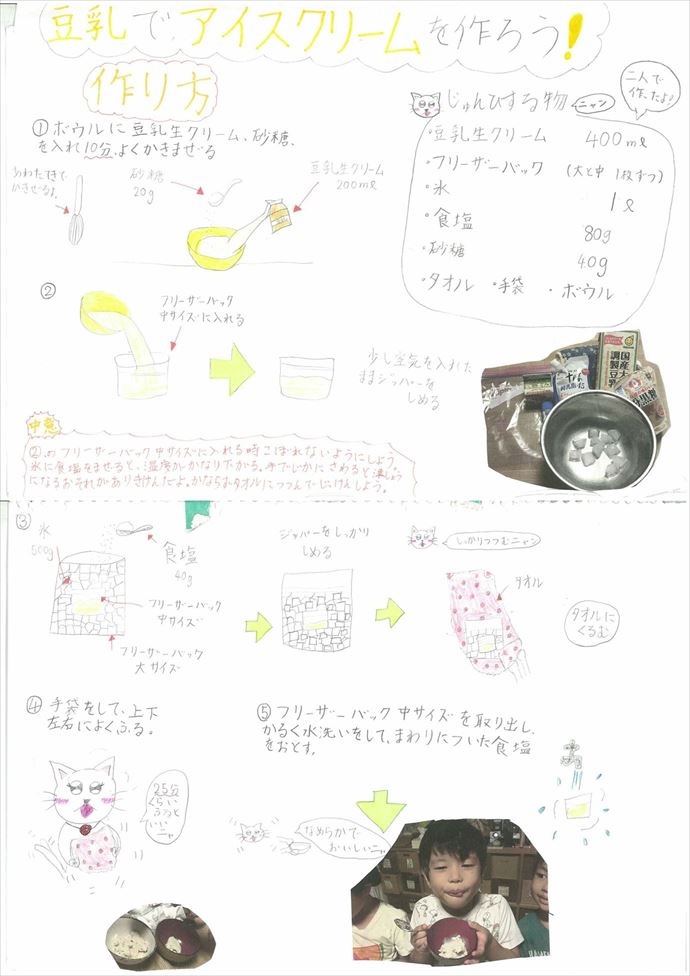 豆乳でアイスクリームを作ろう!
作り方
①ボウルに豆乳生クリーム、砂糖、
を入れ10分、よくかきまぜる
あわたてきで
かきまぜるよ。
砂糖
20g
豆乳生クリーム
200ml
じゅんびする物
ニャン
二人で
作ったよ!
・豆乳生クリーム 400ml
・フリーザーバック (大と中 1枚ずつ)
・氷 1ℓ
・食塩 80g
・砂糖 40g
・タオル ・手袋 ・ボウル
②
フリーザーバック
中サイズに入れる
少し空気を入れた
ままジッパーを
しめる
国産大
調製豆乳
中意
②.のフリーザーバック中サイズに入れる時こぼれないようにしよう。
氷に食塩をまぜると、温度がかなり下がる。手でじかにさわると凍しょう
になるおそれがありきけんだよ。かならずタオルにつつんでじっけんしよう。
③
氷
500g
食塩
40g
フリーザーバック
中サイズ
フリーザーバック
大サイズ
ジッパーをしっかり
しめる
しっかりつつむニャン
タオル
タオルに
くるむ
④手袋をして、上下
左右によくふる。
25分
くらい
ふると
いい
ニャ
⑤フリーザーバック中サイズを取り出し、
かるく水洗いをして、まわりについた食塩
をおとす。
なめらかで
おいしいニャ